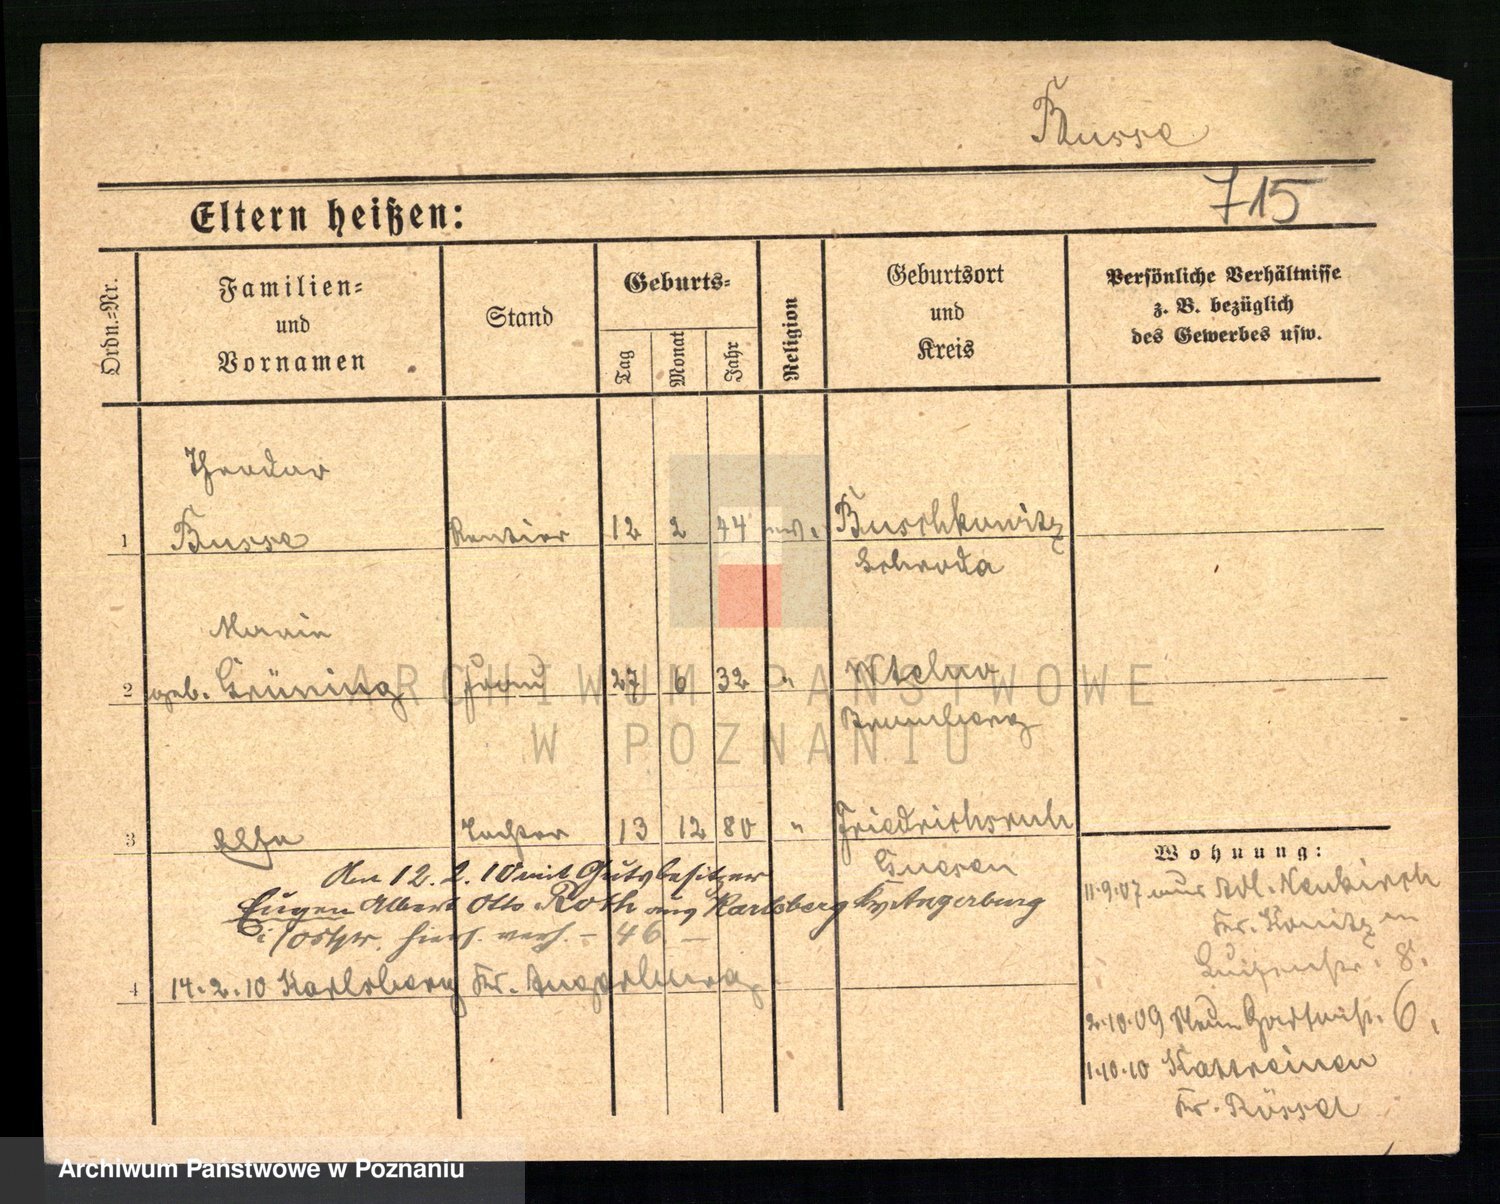 Busse
715
Eltern heißen:
Ordn.-Nr.
Familien-
und
Vornamen
Stand
Geburts-
Tag
Monat
Jahr
Religion
Geburtsort
und
Kreis
Persönliche Verhältnisse
z. B. bezüglich
des Gewerbes usw.
Theodor
1 Busse Rentier 12 2 44 Buschkowitz
Schroda
Marie
2 geb. Grüning Frau 27 6 32 " Wtelno
Bromberg
3 Elsa Tochter 13 12 80 " Friedrichsruh
Gnesen
Am 12. 2. 10 mit Gutsbesitzer
Eugen Albert Otto Roth aus Karlsberg Kr. Angerburg
i/Ostpr. hiers. verh. - 46 -
4 14. 2. 10 Karlsberg Kr. Angerburg
Wohnung:
11. 9. 07 von Adl. Neukirch
Kr. Konitz
Luisenstr. 8.
2. 10. 09 Neue Gartenstr. 6.
1. 10. 10 Kattreinen
Kr. Rössel
ARCHIWUM PAŃSTWOWE
W POZNANIU
Archiwum Państwowe w Poznaniu